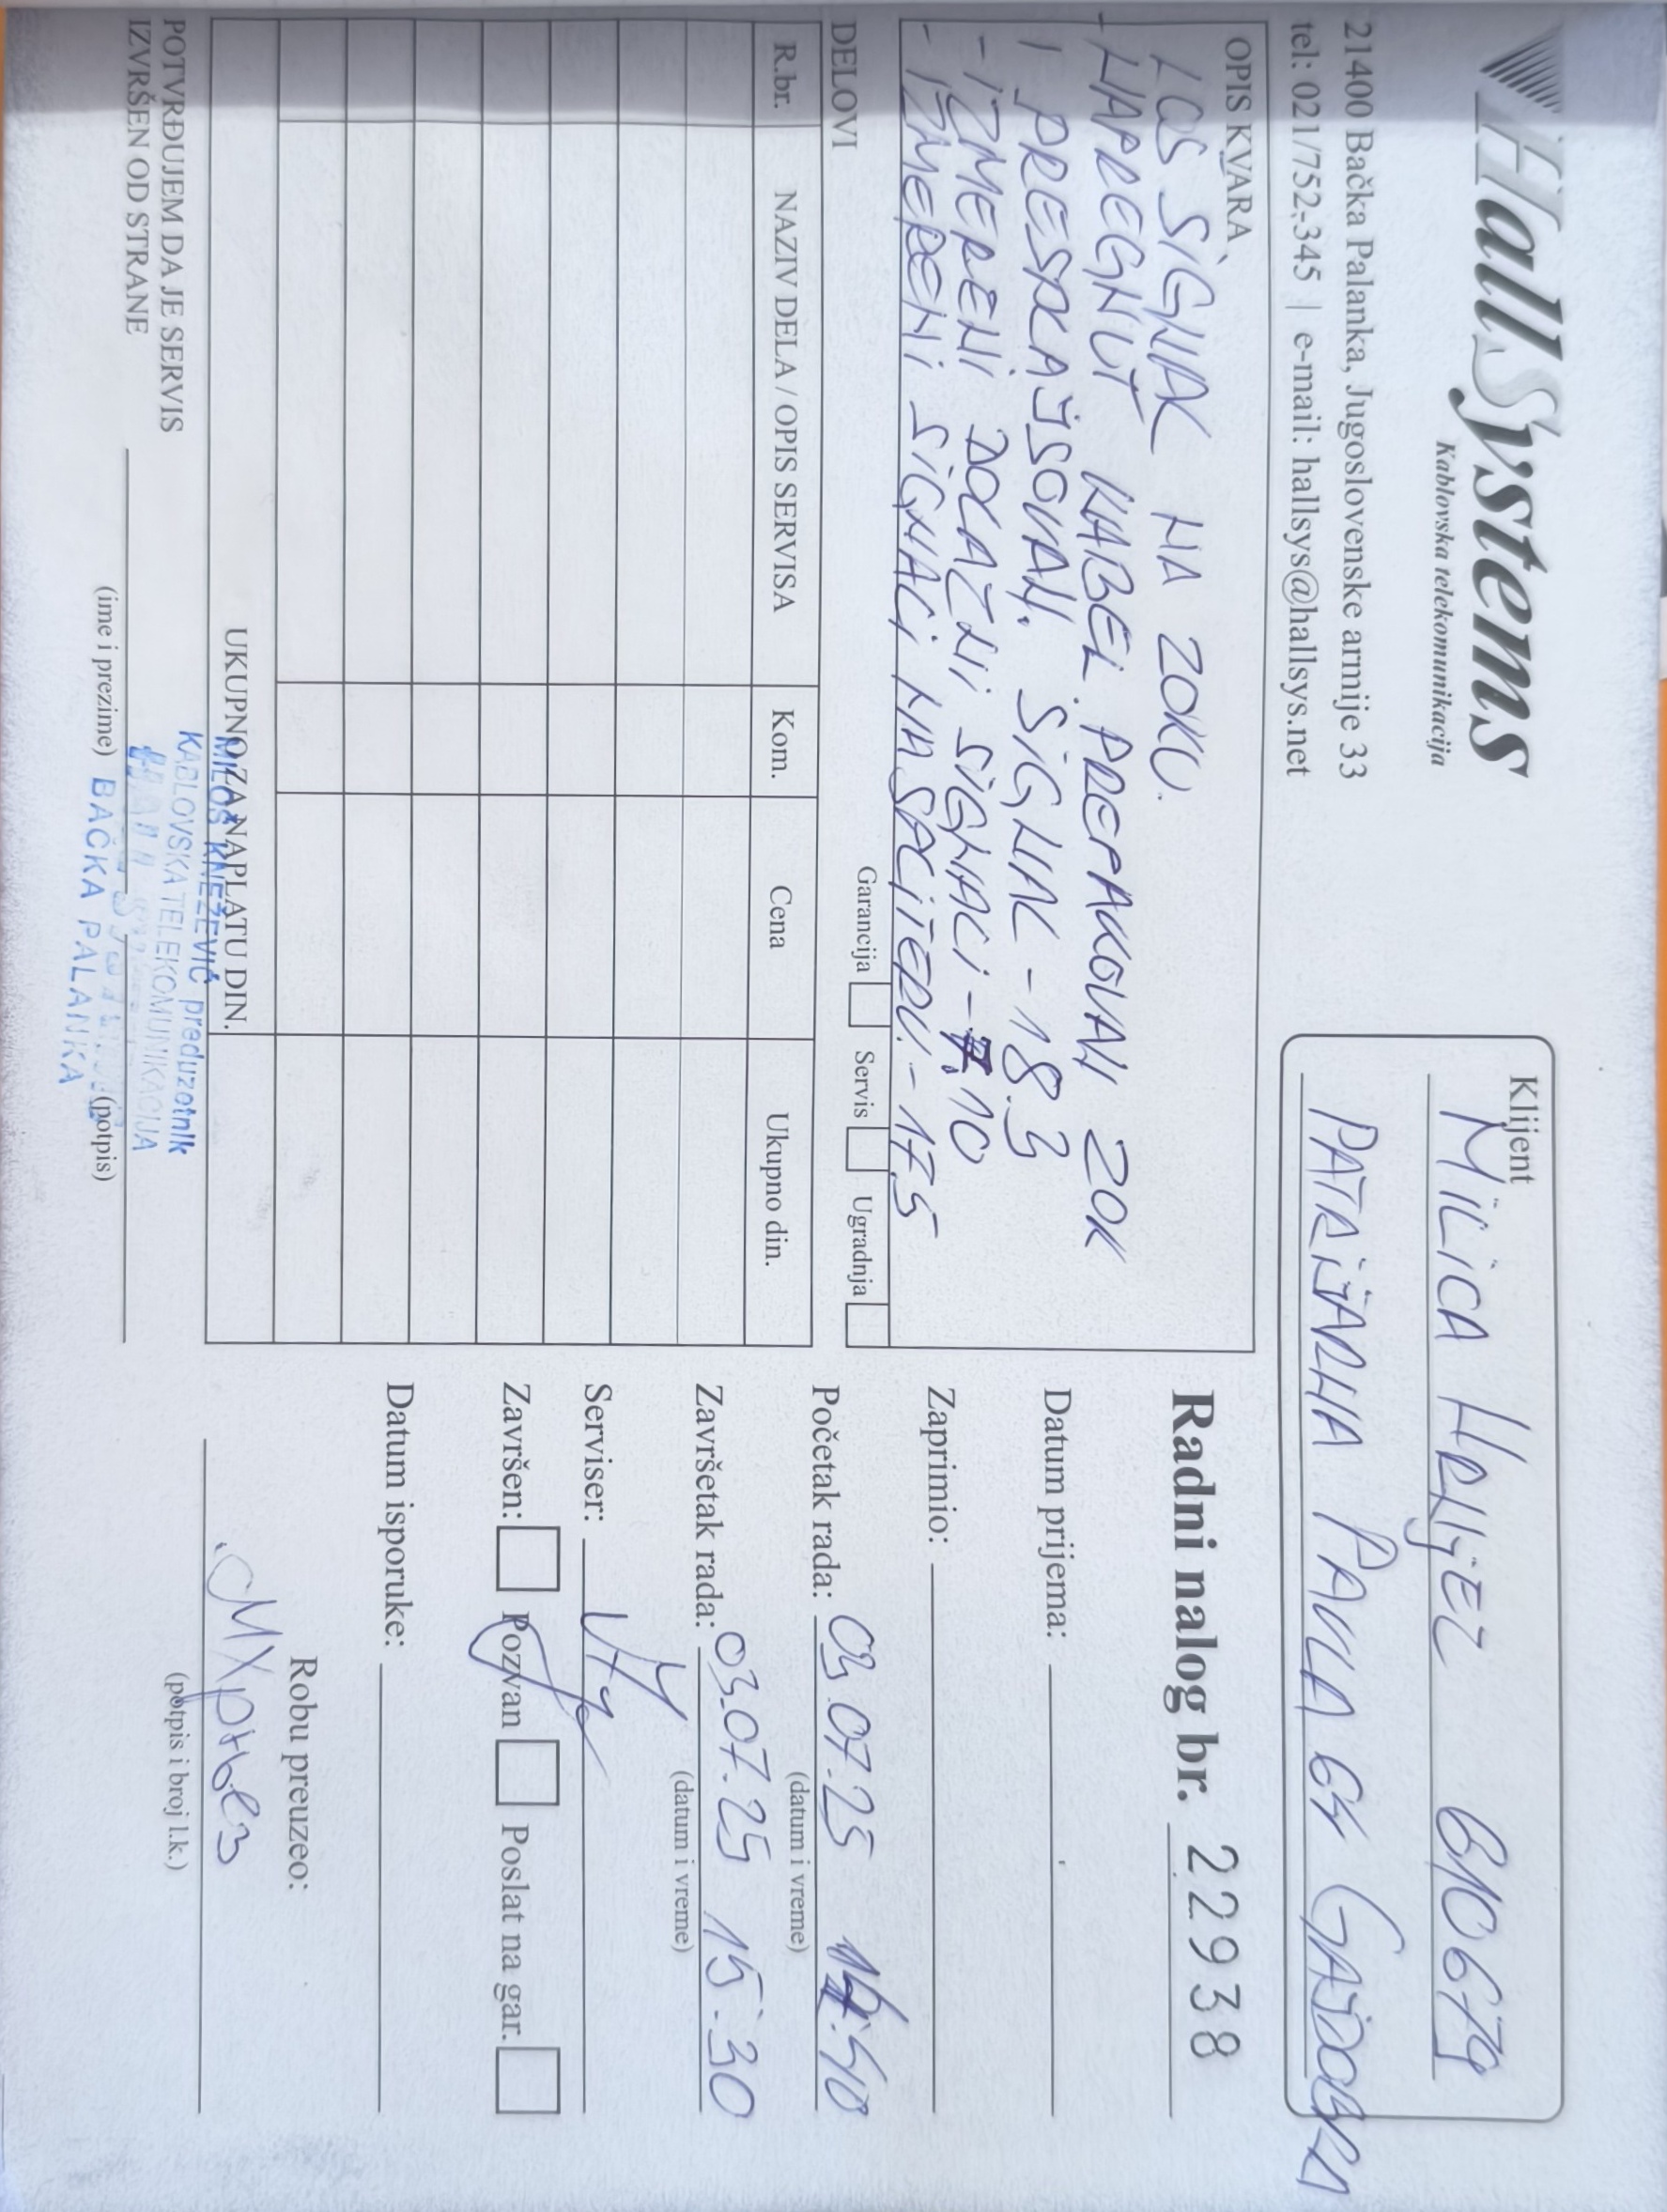 HallSystems
Kablovska telekomunikacija
21400 Bačka Palanka, Jugoslovenske armije 33
tel: 021/752-345 | e-mail: hallsys@hallsys.net
Klijent
MILICA HRLJEZ 610679
PATRIJARHA PAVLA 64 GAJDOBRA
OPIS KVARA
LOŠ SIGNAL NA ZOKU.
- NAPREGNUT KABEL. PREPAKOVAN ZOK
I PRESPLAJSOVAN. SIGNAL - 18.3
- IZMERENI DOLAZNI SIGNALI - 7.10
- IZMERENI SIGNALI NA SPLITERU. - 17.5
DELOVI
Garancija Servis Ugradnja
R.br. NAZIV DELA / OPIS SERVISA Kom. Cena Ukupno din.
UKUPNO ZA NAPLATU DIN.
POTVRĐUJEM DA JE SERVIS
IZVRŠEN OD STRANE
(ime i prezime)
(potpis)
MILOŠ KNEŽEVIĆ preduzetnik
KABLOVSKA TELEKOMUNIKACIJA
BAČKA PALANKA
Radni nalog br. 22938
Datum prijema:
Zaprimio:
Početak rada: 03.07.25 14:40
(datum i vreme)
Završetak rada: 03.07.25 15:30
(datum i vreme)
Serviser:
Završen: Pozvan Poslat na gar.
Datum isporuke:
Robu preuzeo:
(potpis i broj l.k.)